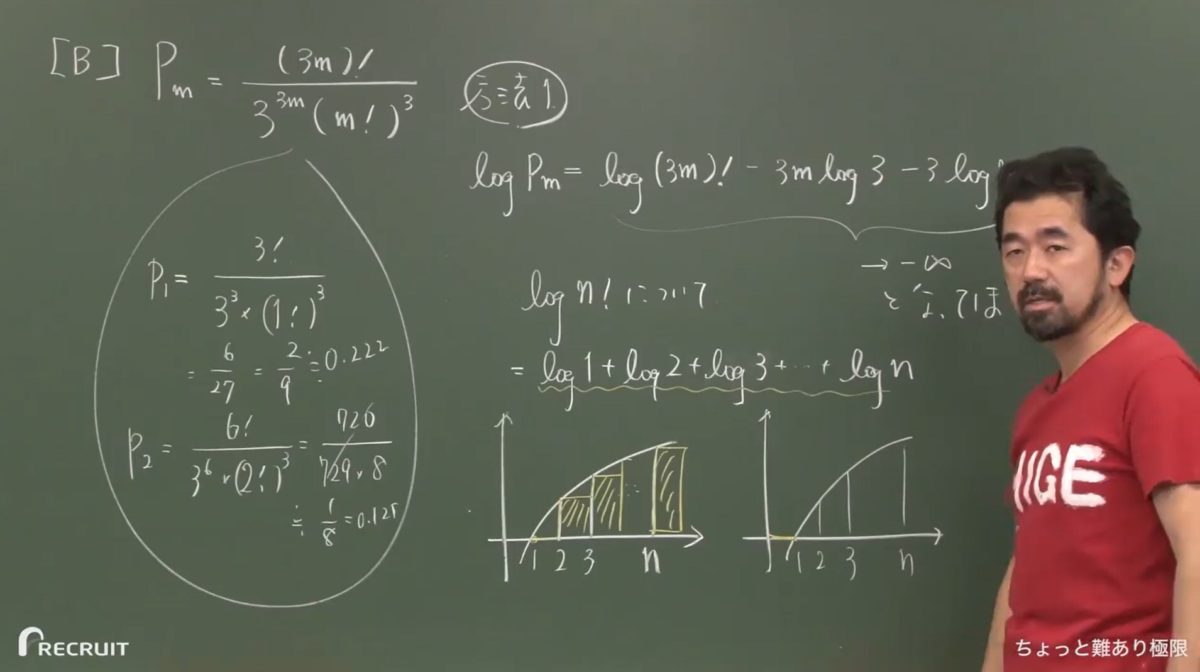 [B] Pm = (3m)! / 3^3m (m!)^3
log Pm = log (3m)! - 3m log 3 - 3 log
→ -∞
P1 = 3! / 3^3 × (1!)^3
= 6/27 = 2/9 ≒ 0.222
P2 = 6! / 3^6 × (2!)^3 = 720 / 729 × 8
≒ 1/8 = 0.125
log n! について
= log 1 + log 2 + log 3 + … + log n
1 2 3 n
1 2 3 n
HIGE
RECRUIT
ちょっと難あり極限